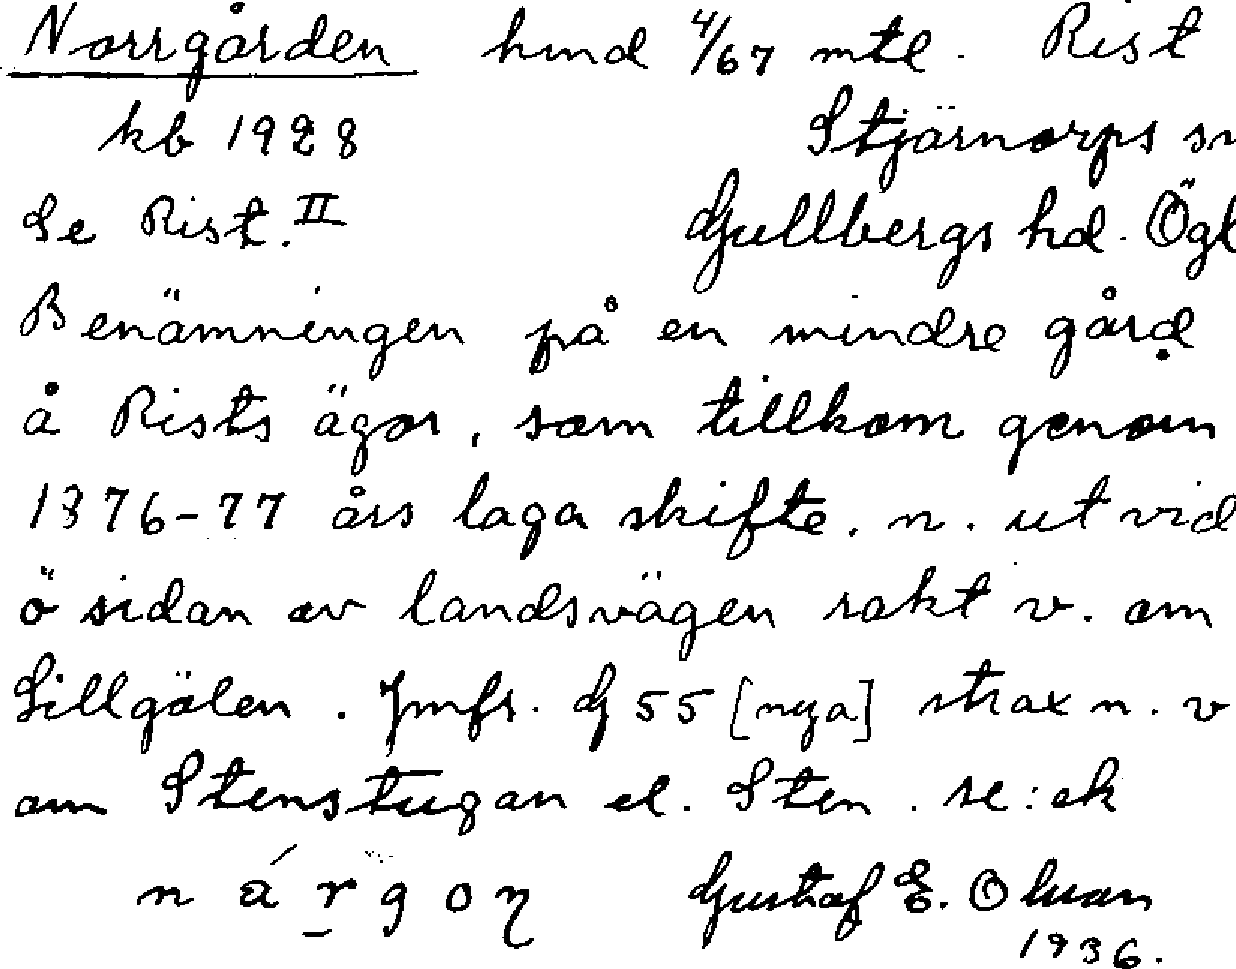 Norrgården hmd 4/67 mtl. Rist
kb 1928 Stjärnorps sn
Se Rist. II Gullbergs hd. Ögl
Benämningen på en mindre gård
å Rists ägor, som tillkom genom
1876-77 års laga skifte. n. ut vid
ö sidan av landsvägen rakt v. om
Sillgölen. Jmfr. G 55 [nya] strax n. v
om Stenstugan el. Sten. se: ek
Gustaf E. Olsson
1936.